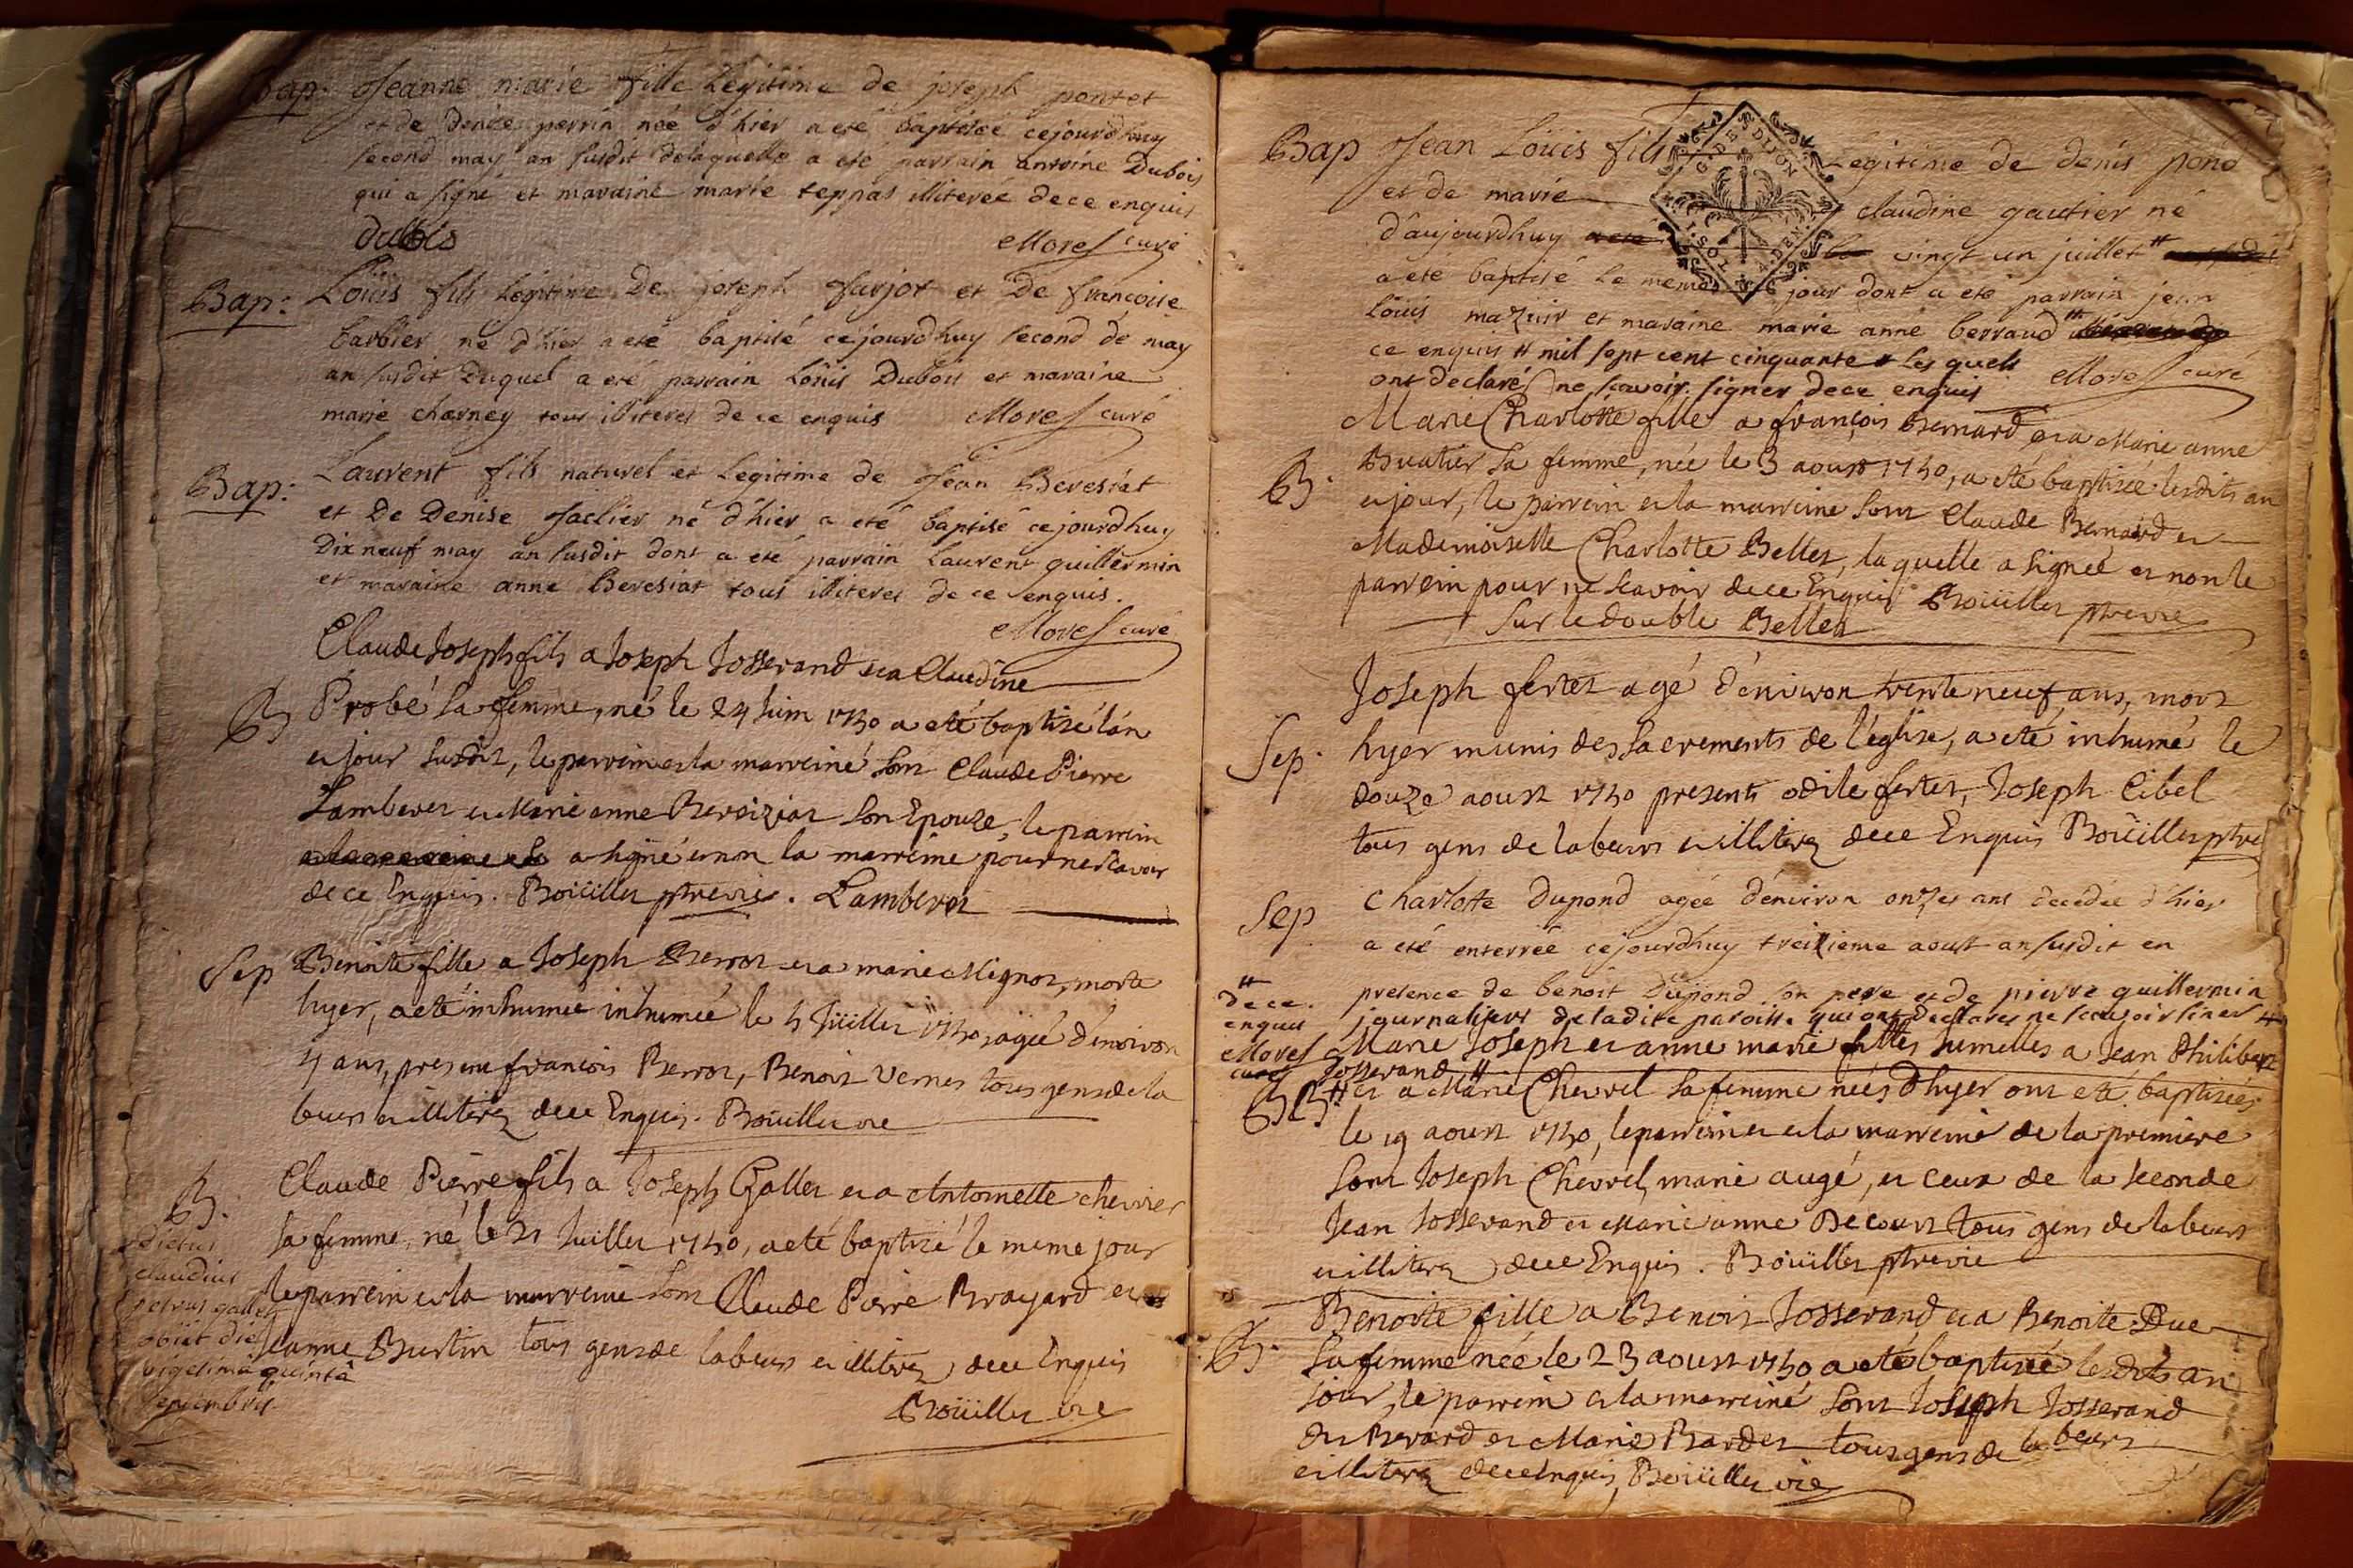 Bap: Jeanne marie fille légitime de joseph pontet
et de denise perrin née d'hier a eté baptisée cejourdhuy
second may an susdit delaquelle a eté parrain antoine Dubois
qui a signé et maraine marie teppas illiteree dece enquis
dubois Morel curé
Bap: Loüis fils légitime De joseph farjot et De francoise
barbier né d'hier a eté baptisé cejourdhuy second de may
an susdit Duquel a eté parrain Loüis Dubois et maraine
marie charney tous illiterés de ce enquis Morel curé
Bap: Laurent fils naturel et legitime de Jean Beresiat
et De Denise Jaclier né d'hier a eté baptisé cejourdhuy
Dix neuf may an susdit dont a eté parrain Laurent guillermin
et maraine anne Beresiat tous illiteres de ce enquis.
Morel curé
Claude Joseph fils a Joseph Josserand et a Claudine
B Probé sa femme, né le 24 Juin 1750 a eté baptisé l'an
et jour susdit, le parrein et la marreine sont Claude Pierre
Lamberet et Marie anne Bereiziat son Epouze, le parrein
a signé et non la marreine pour ne scavoir
de ce Enquis. Boüillet ptre vie. Lamberet
Sep Benoite fille a Joseph Berrot et a marie Mignot, morte
hyer, a eté inhumée inhumée le 5 Jüillet 1750, agée d'environ
4 ans, present françois Berrot, Benoit Vernes tous gens de la
beurs et illiterez dece Enquis. Boüillet vie
B. Claude Pierre fils a Joseph Gallet et a Antoinette chevrier
sa femme, né le 21 Juillet 1750, a eté baptizé le meme jour
le parrein et la marreine sont Claude Pierre Brayard et
Jeanne Burtin tous gens de labeurs et illiterez dece Enquis
Boüillet vie
dictus
claudius
petrus gallet
obiit die
vigesima quintâ
septembris
Bap Jean Loüis fils Legitime de denis pond
G. DE DIJON
et de marie claudine gautier né
d'aujourdhuy vingt un juillet #
a eté baptisé le meme jour dont a eté parrain jean
Loüis mazuir et maraine marie anne berraud
ce enquis # mil sept cent cinquante # Les quels
ont declaré ne scavoir signer dece enquis Morel curé
Marie Charlotte fille a françois Bernard et a Marie anne
B. Buatier sa femme, née le 3 aoust 1750, a eté baptisée lesdits an
et jour, le parrein et la marreine sont Claude Bernard et
Mademoiselle Charlotte Bellet, laquelle a signeé et non le
parrein pour ne scavoir dece Enquis Boüillet ptre vie
Sur le double Bellet
Joseph fertet agé d'environ trente neuf ans, mort
Sep. hyer munis des sacrements de l'église, a eté inhumé le
douze aoust 1750 presents odile fertet, Joseph Cibel
tous gens de labeurs et illiterez dece Enquis Boüillet ptre
Sep Charlotte Dupond agée d'environ onzes ans decedée d'hier
a eté enterrée cejourdhuy treizieme aoust an susdit en
presence de benoit Dupond son pere et de pierre guillermin
journaliers de ladite paroisse qui ont declares ne scavoir siner #
# dece.
enquis
Morel
curé
Marie Joseph et anne marie filles Jumelles a Jean Philibert
Josserand #
BB. # et a Marie Chevrel sa femme neés d'hyer ont eté baptisées
le 19 aoust 1750, le parrein et la marreine de la premiere
sont Joseph Chevrel, marie augé, et ceux de la seconde
Jean Josserand et Marie anne Decourt tous gens de labeurs
et illiterez dece Enquis. Boüillet ptre vie
Benoite fille a Benoit Josserand et a Benoite Due
B. sa femme née le 23 aoust 1750 a eté baptisée lesdits an
jour, le parrein et la marreine sont Joseph Josserand
du Berard et Marie Bardet tous gens de labeurs
et illiterez dece Enquis, Boüillet vie